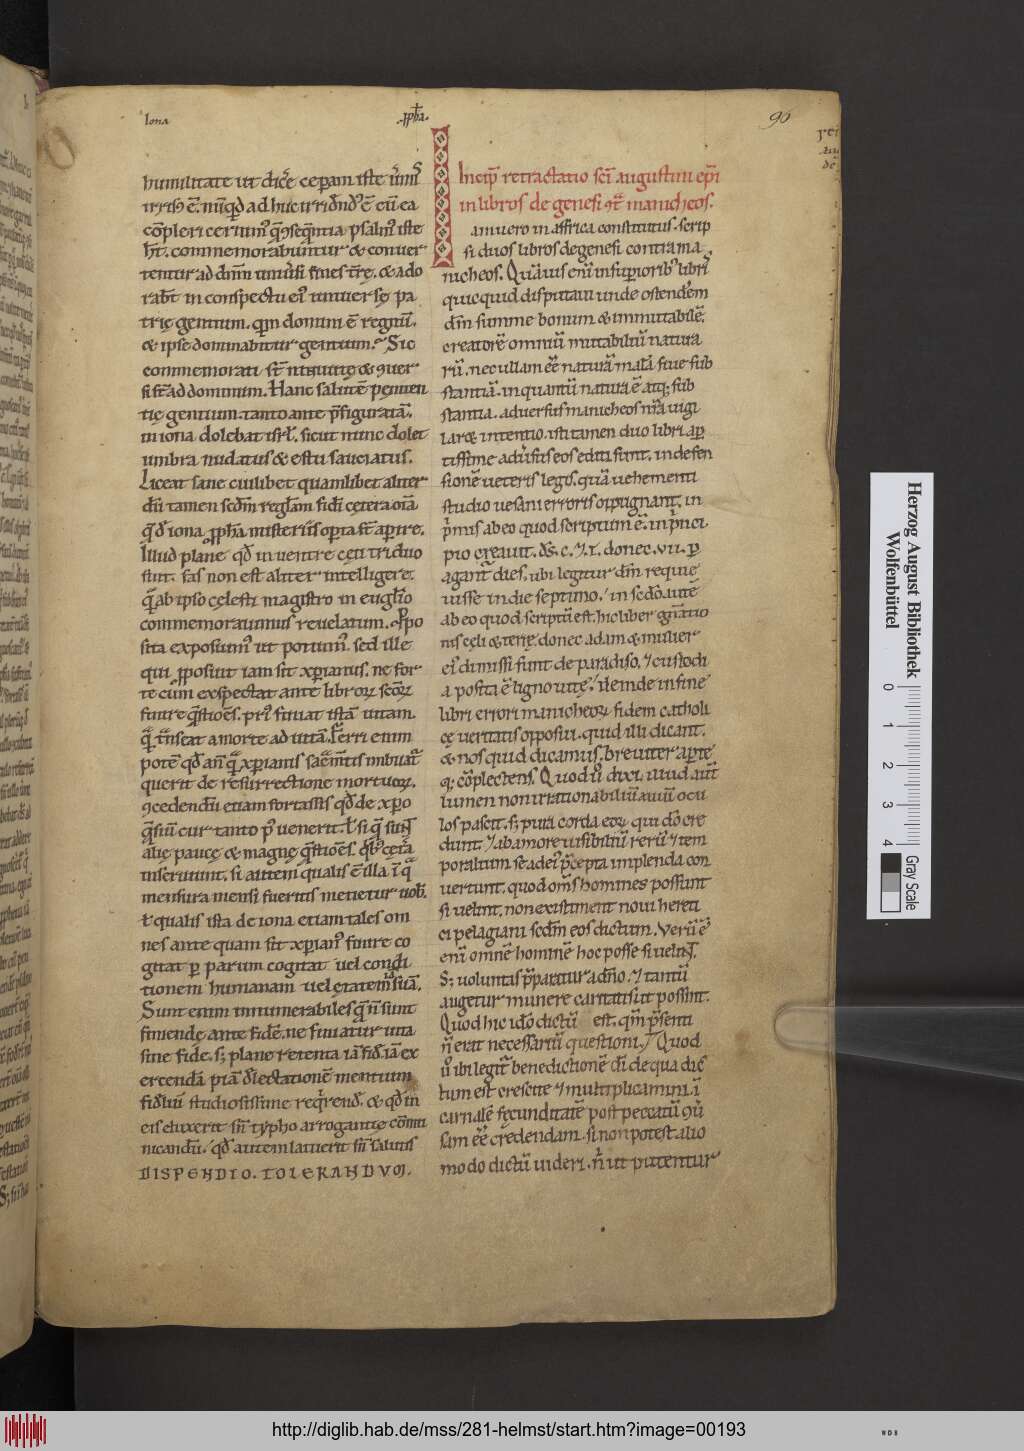 Iona
ꝓpha.
96
humilitate ut dicẽ ceperam iste uermis
irrisus ẽ. nũquid adhuc irridendus ẽ cũ ea
cõpleri cernimus quę consequentia psalmi iste
habet. commemorabuntur & conuer
tentur ad dñm uniuersi fines terrę. & ado
rabunt in conspectu eius uniuersę pa
trię gentium. qm̃ domini ẽ regnũ.
& ipse dominabitur gentium? Sic
commemorati sunt niniuitę & conuer
si sunt ad dominum. Hanc salutẽ penien
tię gentium. tanto ante prefiguratã.
in iona dolebat isrł. sicut nunc dolet
umbra nudatus & estu sauciatus.
Liceat sane cuilibet quamlibet aliter
dũ tamen scdm̃ reglam fidei cętera oĩa
quę de iona ꝓpha misteriis operta sunt aperire.
Illud plane qd̃ in uentre cęti triduo
fuit. fas non est aliter intelligere.
quã ab ipso cęlesti magistro in euglĩo
commemorauimus reuelatum. Ꝓpo
sita exposuimus ut potuimus. sed ille
qui ꝓposuit iam sit xp̃ianus. ne for
te cum exspectat ante librorꝝ scõrꝝ
finire questiões. prius finiat istã uitam.
quã transeat a morte ad uitã. Ferri enim
potest qd̃ antequã xp̃ianis sacramentis imbuatur
querit de resurrectione mortuorꝝ.
concedendũ etiam fortassis qd̃ de xp̃o
quęsiuit cur tanto post uenerit. uł si quę sunt
alię paucę & magnę quęstiões. quibus cetera
inseruiunt. si autem qualis ẽ illa. in qua
mensura mensi fueritis metietur uobis.
uł qualis ista de iona etiam tales om
nes ante quam sit xp̃ianus finire co
gitat per parum cogitat uel condi
tionem humanam uel ętatem suã.
Sunt enim innumerabiles quę non sunt
finiendę ante fidẽ. ne finiatur uita
sine fide. sꝫ plane retenta iã fide. iã ex
ercendã piã delectationẽ mentium
fideliũ studiosissime requirendę. & qd̃ in
eis eluxerit sine typho arrogantię cõmu
nicandũ. qd̃ autem latuerit sine salutis
DISPENDIO. TOLERANDVM.
Incip̃ retractatio scĩ augustini ep̃i
in libros de genesi contra manicheos.
Iam uero in affrica constitutus. scrip
si duos libros de genesi contra ma
nicheos. Quãuis enĩ in superioribus libris
quicquid disputaui unde ostenderem
dm̃ summe bonum & inmutabilẽ.
creatorẽ omniũ mutabiliũ natura
rũ. nec ullam eẽ naturã malã siue sub
stantiã. in quantũ natura ẽ atqꝫ sub
stantia. aduersus manicheos nr̃a uigi
laret intentio. isti tamen duo libri aper
tissime aduersus eos editi sunt. in defen
sionẽ ueteris legis. quã uehementi
studio uesani erroris oppugnant. in
primis ab eo quod scriptum ẽ. in princi
pio creauit. ds̃. c. ⁊. t. donec. vii. per
agantur dies. ubi legitur dm̃ requie
uisse in die septimo. in secdo autẽ
ab eo quod scriptũ est. hic liber genẽratio
nis cęli & terrę. donec adam & mulier
eius dimissi sunt de paradiso. ⁊ custodi
a posita ẽ ligno uitę. deinde in fine
libri errori manicheorꝝ fidem catholi
cę ueritatis opposui. quid illi dicant.
& nos quid dicamus. breuiter aperte
qꝫ cõplectens. Quod uero dixi. illud autẽ
lumen non irrationabiliũ auiũ ocu
los pascit. sꝫ pura corda eorꝝ qui deo cre
dunt. ⁊ ab amore uisibiliũ rerũ ⁊ tem
poralium se ad eius precepta implenda con
uertunt. quod oms̃ homines possunt
si uelint. non existiment noui hereti
ci pelagiani scdm̃ eos dictum. Verũ ẽ
enĩ omnẽ hominẽ hoc posse si uelint.
Sꝫ uoluntas preparatur a dño. ⁊ tantũ
augetur munere caritatis ut possint.
Quod hic ideo dictũ est. qm̃ presenti
non erat necessariũ questioni. Quod
uero ibi legitur benedictionẽ dĩ de qua dic
tum est crescite ⁊ multiplicamini. in
carnalẽ fęcunditatẽ post peccatũ conuer
sam eẽ credendam. si non potest alio
modo dictũ uideri. nisi ut putentur
Herzog August Bibliothek
Wolfenbüttel
0 1 2 3 4
Gray Scale
http://diglib.hab.de/mss/281-helmst/start.htm?image=00193